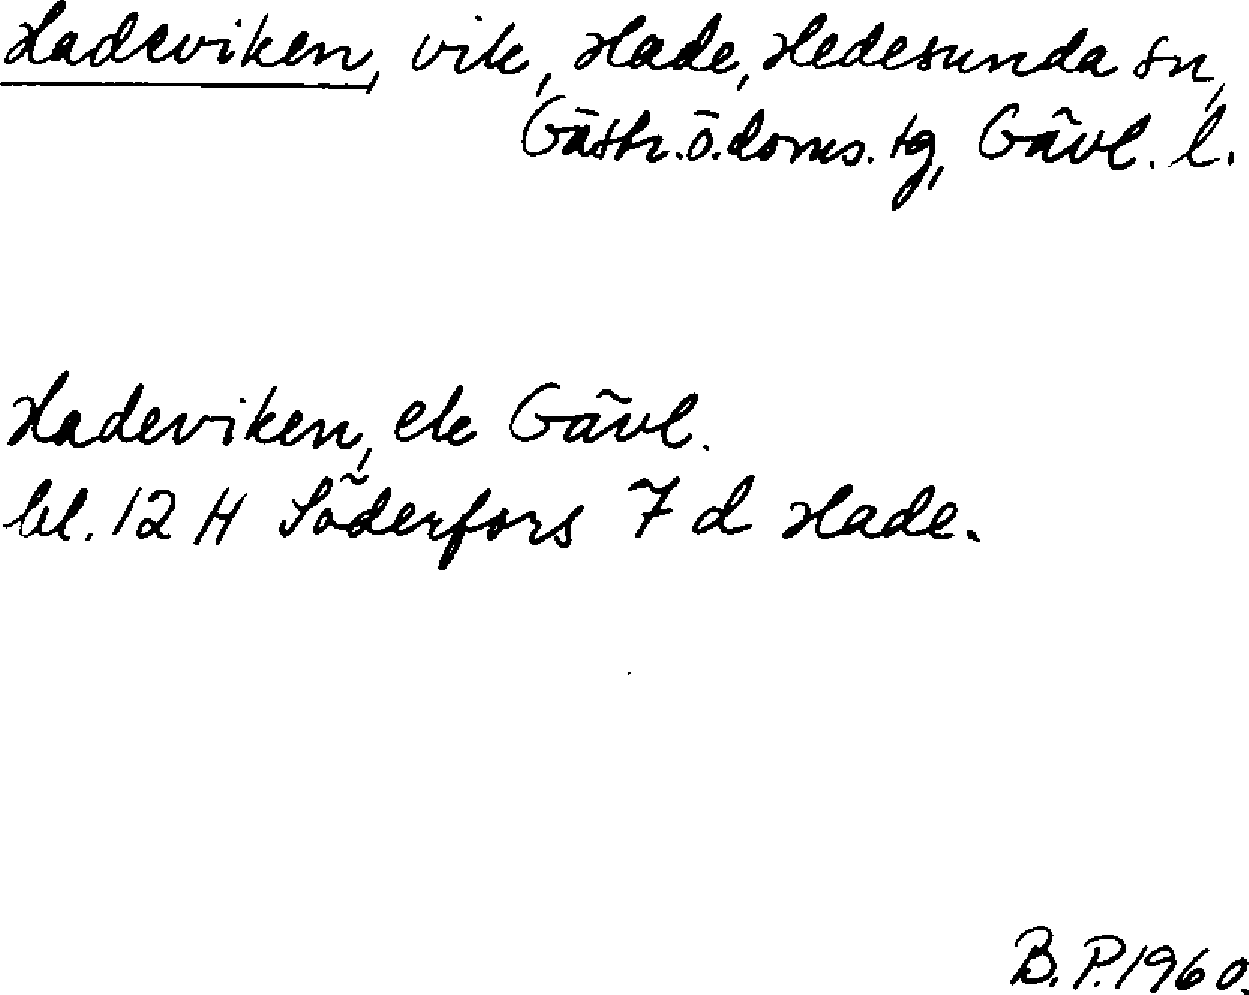 Hadeviken, vik, Hade, Hedesunda sn,
Gästr.ö.doms.tg, Gävl. l.
Hadeviken, ek Gävl.
bl. 12 H Söderfors 7 d Hade.
B.P.1960.